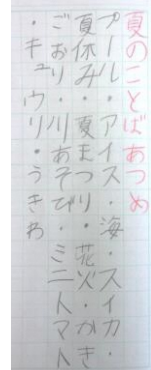 夏のことばあつめ
プール・アイス・海・スイカ・
夏休み・夏まつり・花火・かき
ごおり・川あそび・ミニトマト
・キュウリ・うきわ